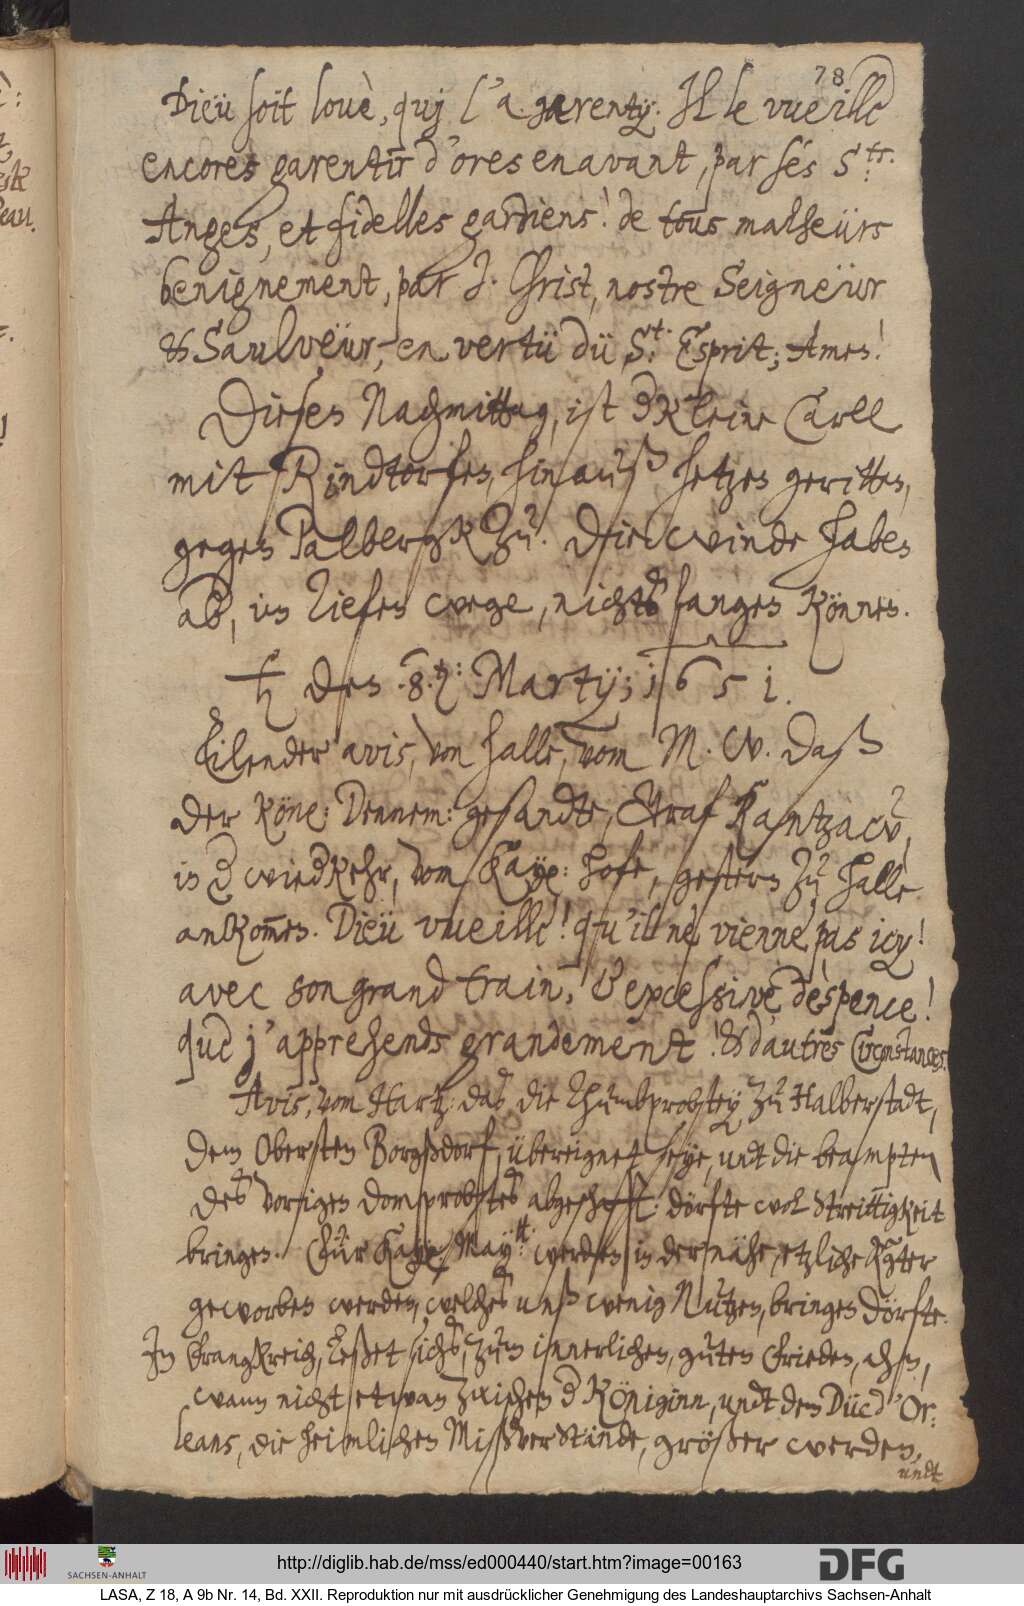 78
Dieü soit louè, quj l'a garenty. Il le vueille
encores garentir d'ores en avant, par ses S.ts:
Anges, et fidelles gardiens! de tous malheürs
benignement, par J. Christ, nostre Seigneür
& Saulveür, en vertü dü St: Esprit; Amen!
Diesen Nachmittag, ist d kleine Carll
mit Rindtorfen, hinauß hetzen geritten,
gegen Palbergk zu. Die winde haben
ab, im tiefen wege, nichts fangen können.
♄ den .8.ten: Martij; 1651.
Eilender avis, von Halle, vom M. W. daß
der Köne: Dennem: gesandte, Graf Rantzaw,
in d wiedkehr, vom Kaye: hofe, gestern zu Halle
ankom̄en. Dieü vueille! qu'il ne vienne pas icy!
avec son grand train, & excessive despence!
que j'apprehends grandement! & d'autres Circonstances.
Avis, vom Hartz: daß die Thumbprobstey zu Halberstadt,
dem Obersten Borgßdorf, übereignet seye, undt die beampten
deß vorigen domprobsts abgeschafft: dörfte wol streittigkeit
bringen. Für Kaye: Maytt: werden in der nähe, etzliche Rgter
geworben werden, welches unß wenig Nutzen, bringen dörfte.
In Frangkreich, leßet sichs, zum innerlichen, guten Frieden, ahn,
wann nicht etwan zwischen d Königinn, undt dem Düc d'Or:
leans, die heimlichen Mißverstände, größer werden,
undt
SACHSEN-ANHALT
http://diglib.hab.de/mss/ed000440/start.htm?image=00163
DFG
LASA, Z 18, A 9b Nr. 14, Bd. XXII. Reproduktion nur mit ausdrücklicher Genehmigung des Landeshauptarchivs Sachsen-Anhalt